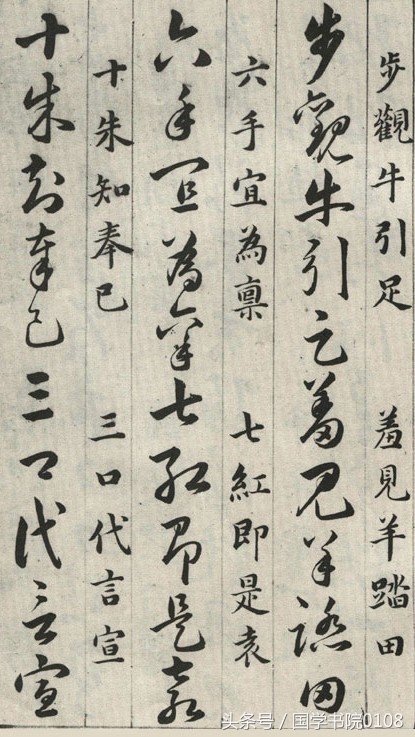 歩觀牛引足 羞見羊踏田
步觀牛引足羞見羊踏田
六手宜為稟 七紅即是袁
六手宜為稟七紅即是袁
十朱知奉已 三口代言宣
十朱知奉已三口代言宣
头条号 / 国学书院0108